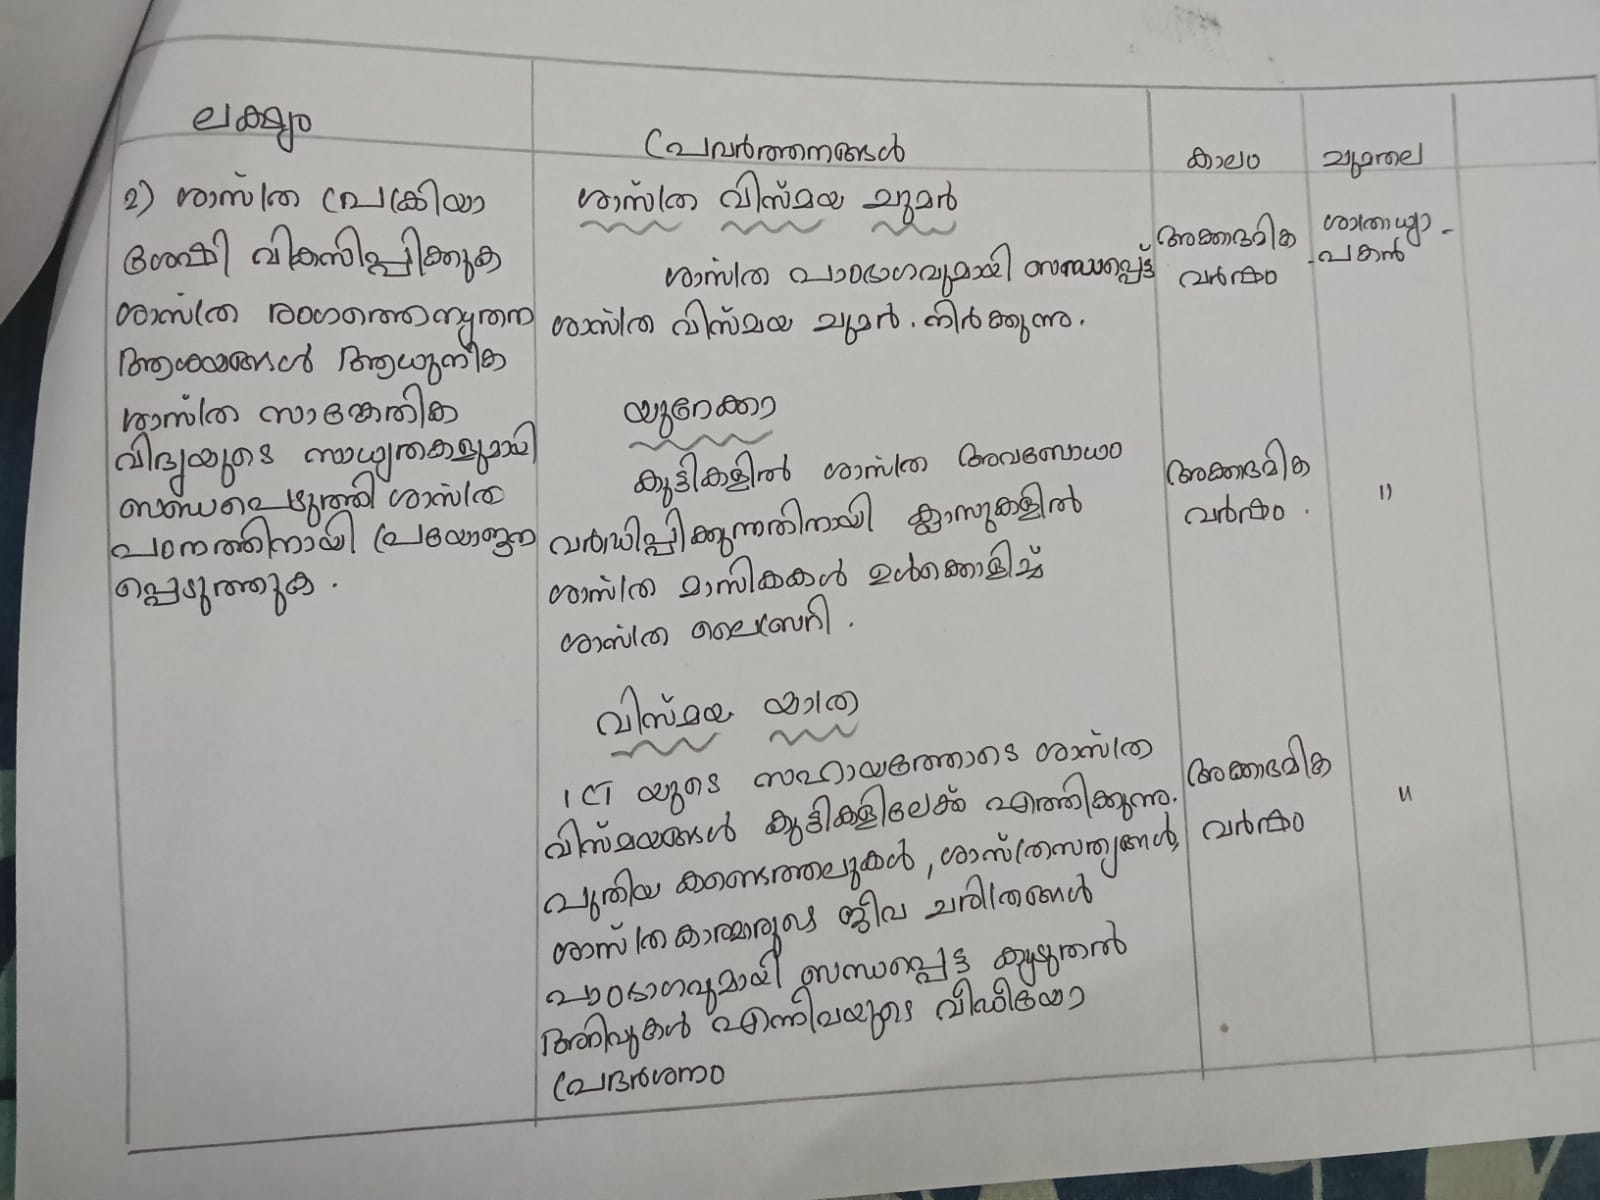 ലക്ഷ്യം
പ്രവർത്തനങ്ങൾ
കാലം
ചുമതല
2) ശാസ്ത്ര പ്രക്രിയാ
ശേഷി വികസിപ്പിക്കുക
ശാസ്ത്ര രംഗത്തെ നൂതന
ആശയങ്ങൾ ആധുനിക
ശാസ്ത്ര സാങ്കേതിക
വിദ്യയുടെ സാധ്യതകളുമായി
ബന്ധപെടുത്തി ശാസ്ത്ര
പഠനത്തിനായി പ്രയോജന
പ്പെടുത്തുക .
ശാസ്ത്ര വിസ്മയ ചുമർ
ശാസ്ത്ര പാഠഭാഗവുമായി ബന്ധപ്പെട്ട്
ശാസ്ത്ര വിസ്മയ ചുമർ . നിർക്കുന്നു .
അക്കാദമിക
വർഷം
പകൻ
യുറേക്കാ
കുട്ടികളിൽ ശാസ്ത്ര അവബോധം
വർദ്ധിപ്പിക്കുന്നതിനായി ക്ലാസുകളിൽ
ശാസ്ത്ര മാസികകൾ ഉൾക്കൊളിച്ച്
ശാസ്ത്ര ലൈബ്രറി .
അക്കാദമിക
വർഷം .
"
വിസ്മയ യാത്ര
ICT യുടെ സഹായത്തോടെ ശാസ്ത്ര
വിസ്മയങ്ങൾ കുട്ടികളിലേക്ക് എത്തിക്കുന്നു.
പുതിയ കണ്ടെത്തലുകൾ , ശാസ്ത്രസത്യങ്ങൾ,
ശാസ്ത്രകാരന്മാരുടെ ജീവ ചരിത്രങ്ങൾ
പാഠഭാഗവുമായി ബന്ധപ്പെട്ട കൂടുതൽ
അറിവുകൾ എന്നിവയുടെ വീഡിയോ
പ്രദർശനം
അക്കാദമിക
വർഷം
"